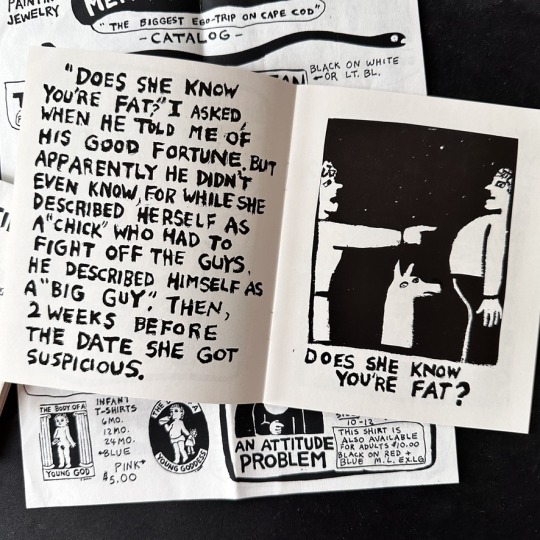 PAINTIN
JEWELRY
"THE BIGGEST EGO-TRIP ON CAPE COD"
-CATALOG-
BLACK ON WHITE
OR LT. BL.
"DOES SHE KNOW
YOU'RE FAT?" I ASKED,
WHEN HE TOLD ME OF
HIS GOOD FORTUNE. BUT
APPARENTLY HE DIDN'T
EVEN KNOW, FOR WHILE SHE
DESCRIBED HERSELF AS
A "CHICK" WHO HAD TO
FIGHT OFF THE GUYS,
HE DESCRIBED HIMSELF AS
A "BIG GUY." THEN,
2 WEEKS BEFORE
THE DATE SHE GOT
SUSPICIOUS.
DOES SHE KNOW
YOU'RE FAT?
THE BODY OF A
YOUNG GOD
INFANT
T-SHIRTS
6 MO.
12 MO.
24 MO.
BLUE
PINK
$5.00
YOUNG GODDESS
AN ATTITUDE
PROBLEM
10-12
THIS SHIRT IS
ALSO AVAILABLE
FOR ADULTS $10.00
BLACK ON RED +
BLUE M. L. EX.LG